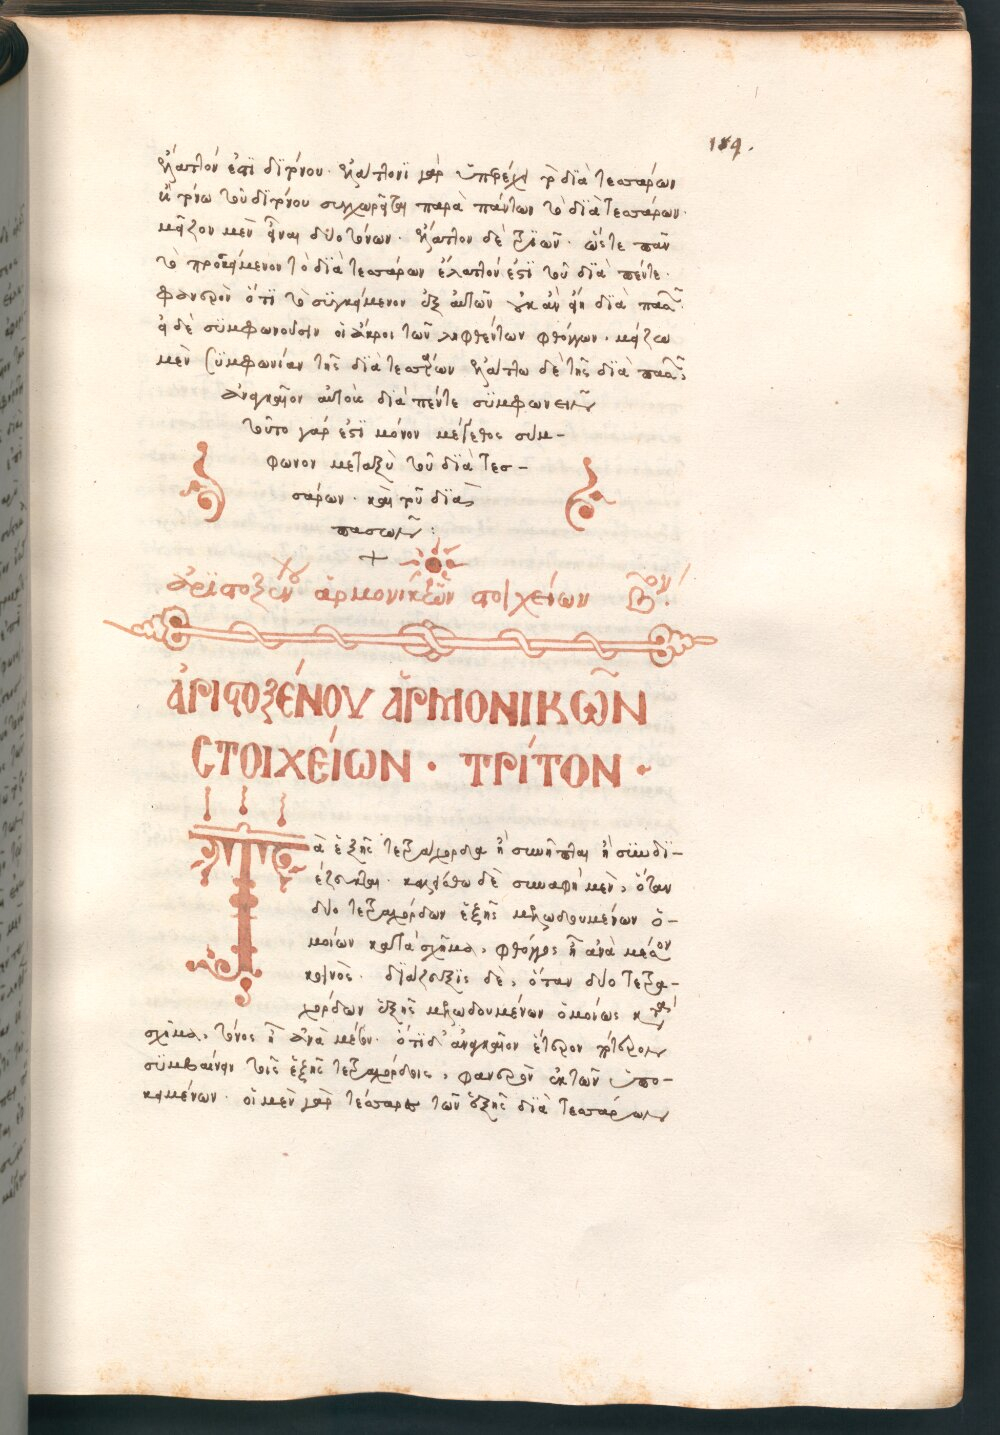 184.
ἔλαττόν ἐστι διτόνου· ἐλάττονι γὰρ ὑπερέχει τὸ διὰ τεσσάρων
ἢ τόνῳ τοῦ διτόνου συγχωρεῖται παρὰ πάντων τὸ διὰ τεσσάρων·
μεῖζον μὲν εἶναι δύο τόνων· ἔλαττον δὲ τριῶν· ὥστε πᾶν
τὸ προσκείμενον τὸ διὰ τεσσάρων ἔλαττόν ἐστι τοῦ διὰ πέντε·
φανερὸν ὅτι τὸ συγκείμενον ἐξ αὐτῶν οὐκ ἂν εἴη διὰ πασῶν
εἰ δὲ συμφωνοῦσιν οἱ ἄκροι τῶν ληφθέντων φθόγγων· μείζω
μὲν συμφωνίαν τῆς διὰ τεσσάρων ἐλάττω δὲ τῆς διὰ πασῶν
ἀναγκαῖον αὐτοὺς διὰ πέντε συμφωνεῖν
τοῦτο γάρ ἐστι μόνον μέγεθος σύμ-
φωνον μεταξὺ τοῦ διὰ τεσ-
σάρων· καὶ τοῦ διὰ
πασῶν :
+
ἀριστοξένου ἁρμονικῶν στοιχείων βον
ἀριστοξένου ἁρμονικῶν
στοιχείων · τρίτον ·
Τὰ ἑξῆς τετράχορδα ἢ συνῆπται ἢ συνδι-
έζευκται· καλείσθω δὲ συναφὴ μὲν, ὅταν
δύο τετραχόρδων ἑξῆς μελωδουμένων ὁ-
μοίων κατὰ σχῆμα, φθόγγος ᾖ ἀνὰ μέσον
κοινός· διάζευξις δὲ, ὅταν δύο τετρα-
χόρδων ἑξῆς μελωδουμένων ὁμοίως κατὰ
σχῆμα, τόνος ᾖ ἀνὰ μέσον· ὅτι δ' ἀναγκαῖον ἕτερον πότερον
συμβαίνειν τοῖς ἑξῆς τετραχόρδοις, φανερὸν ἐκ τῶν ὑπο-
κειμένων· οἱ μὲν γὰρ τέσσαρες τῶν ἑξῆς διὰ τεσσάρων